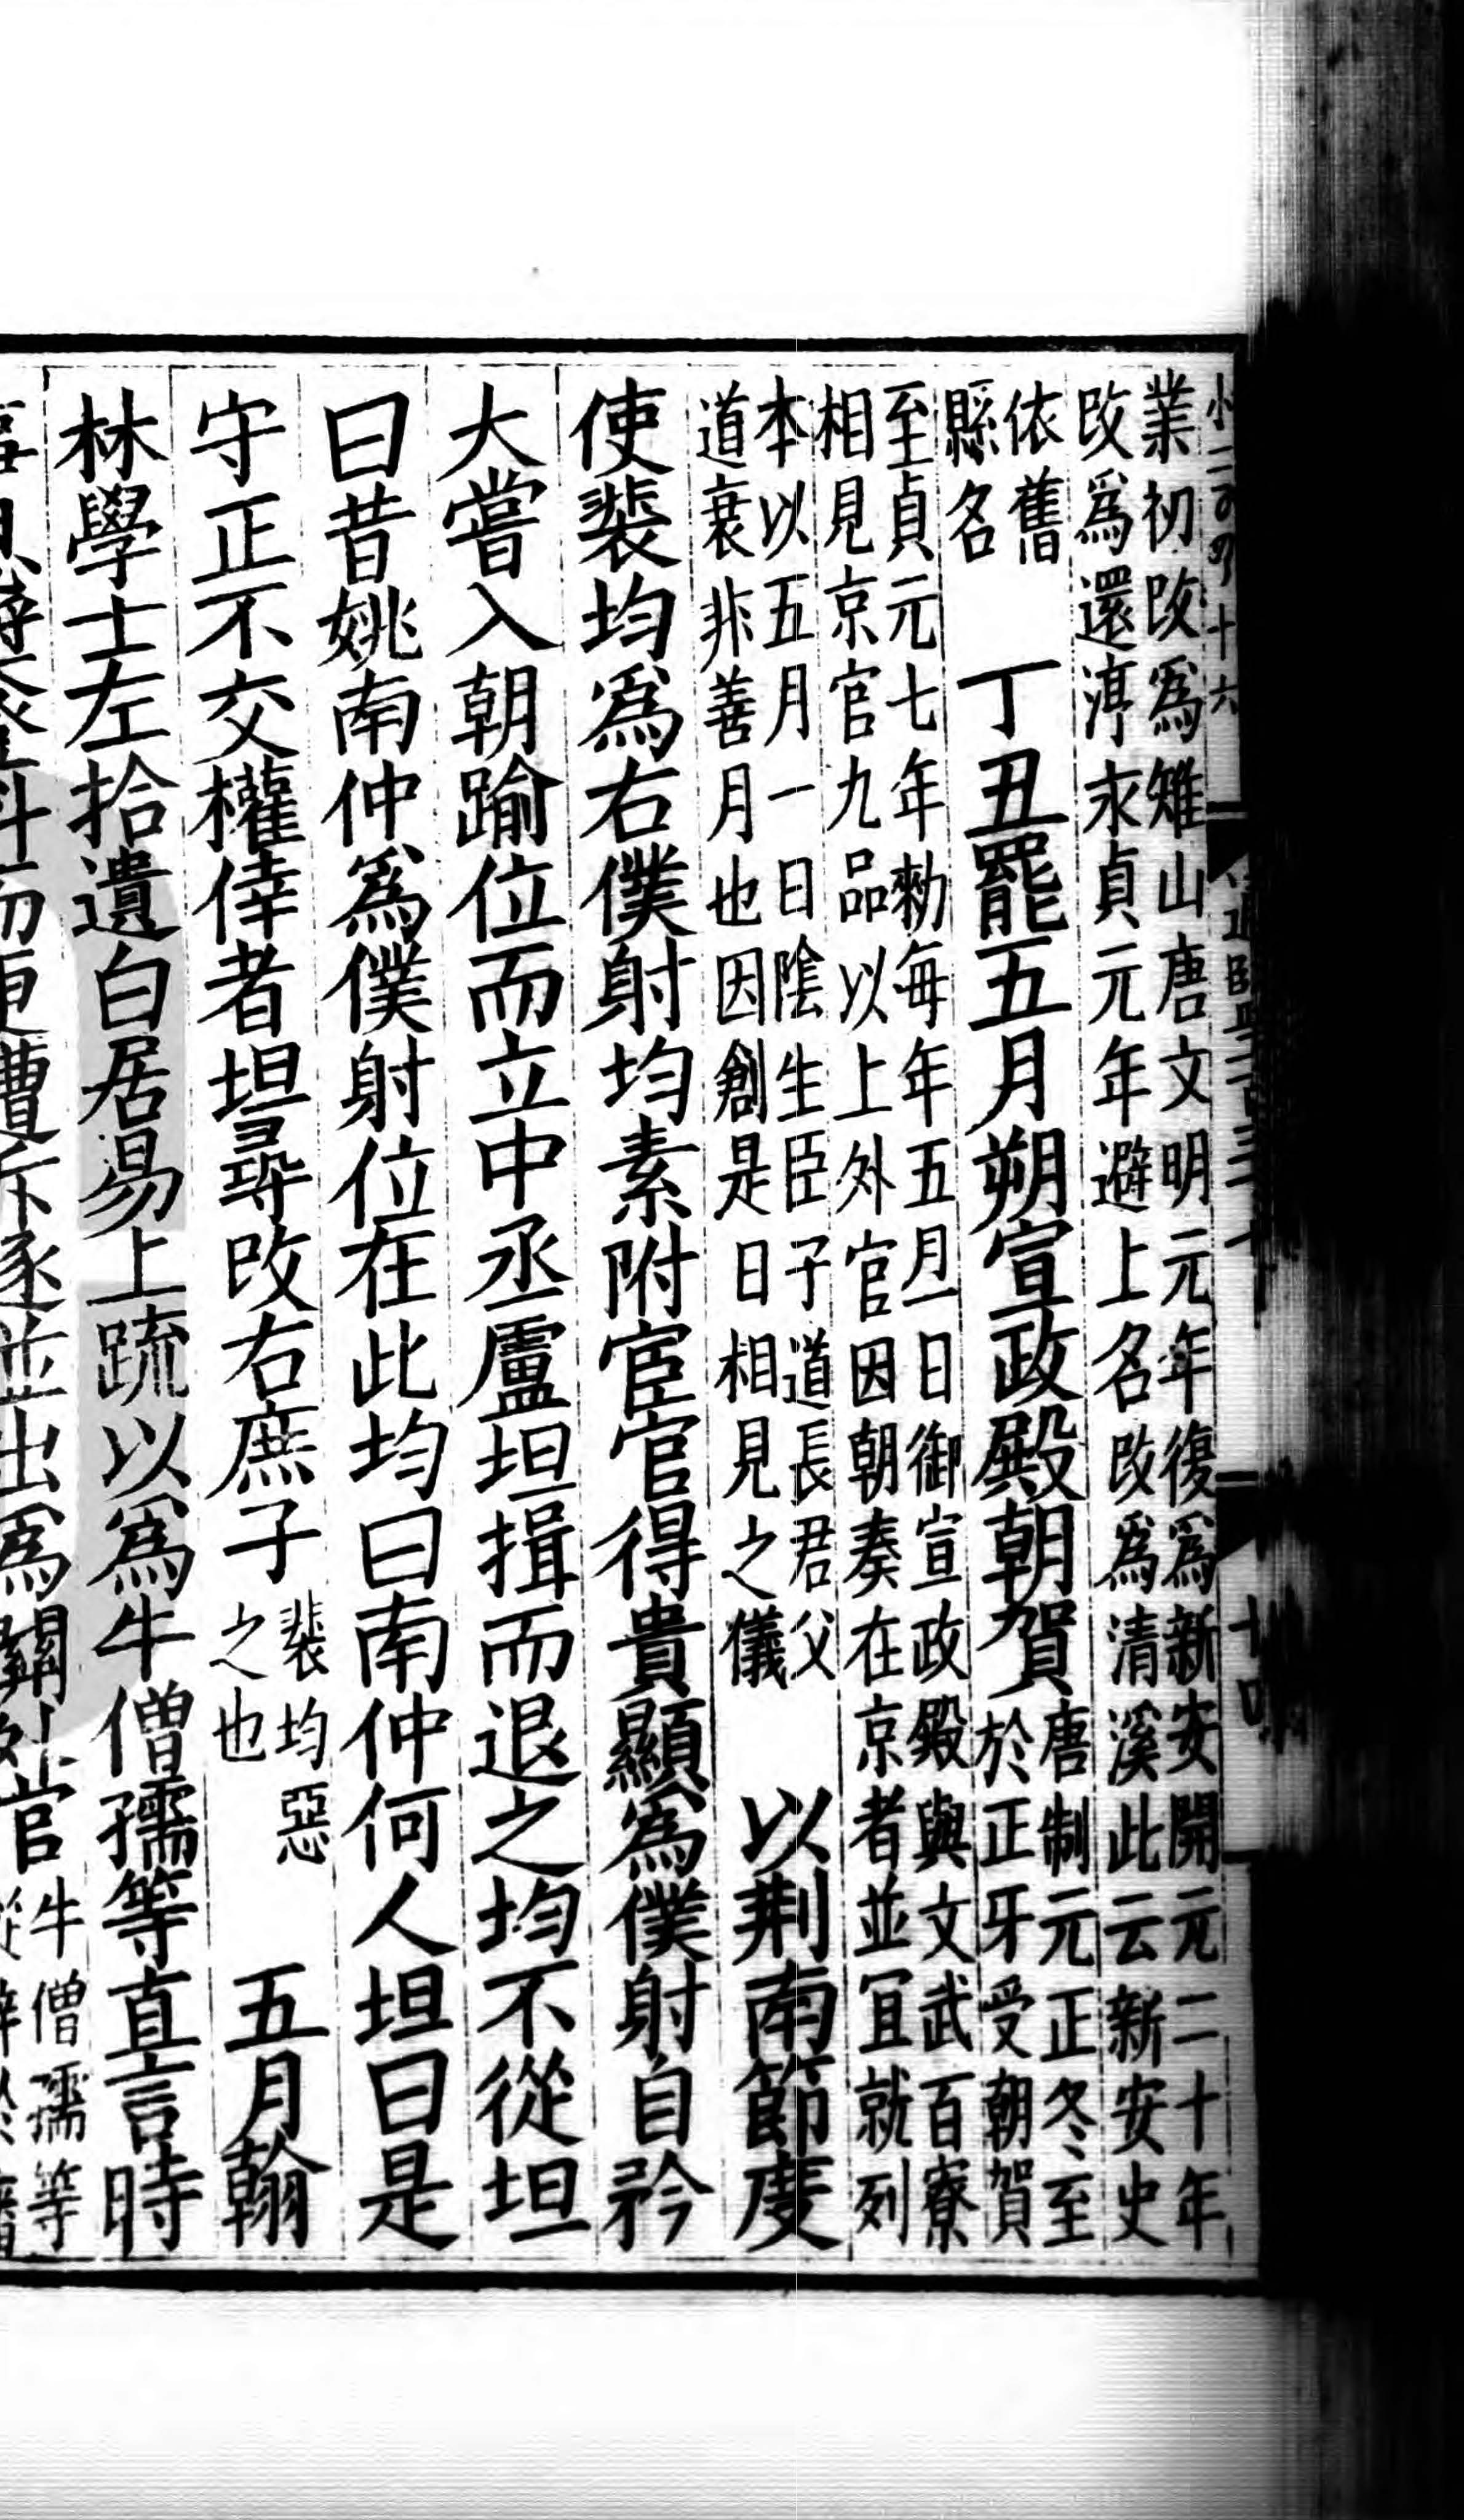 業初改爲雉山唐文明元年復爲新安開元二十年
改爲還淳永貞元年避上名改爲清溪此云新安史
依舊
縣名
丁丑罷五月朔宣政殿朝賀
唐制元正冬至
於正牙受朝賀
至貞元七年勑每年五月一日御宣政殿與文武百寮
相見京官九品以上外官因朝奏在京者並宜就列
本以五月一日隂生臣子道長君父
道衰非善月也因創是日相見之儀
以荆南節度
使裴均爲右僕射均素附宦官得貴顯爲僕射自矜
大嘗入朝踰位而立中丞盧坦揖而退之均不從坦
曰昔姚南仲爲僕射位在此均曰南仲何人坦曰是
守正不交權倖者坦尋改右庶子
裴均惡
之也
五月翰
林學士左拾遺白居易上疏以爲牛僧孺等直言時
而更遭斥逐並出爲關外官
牛僧孺等